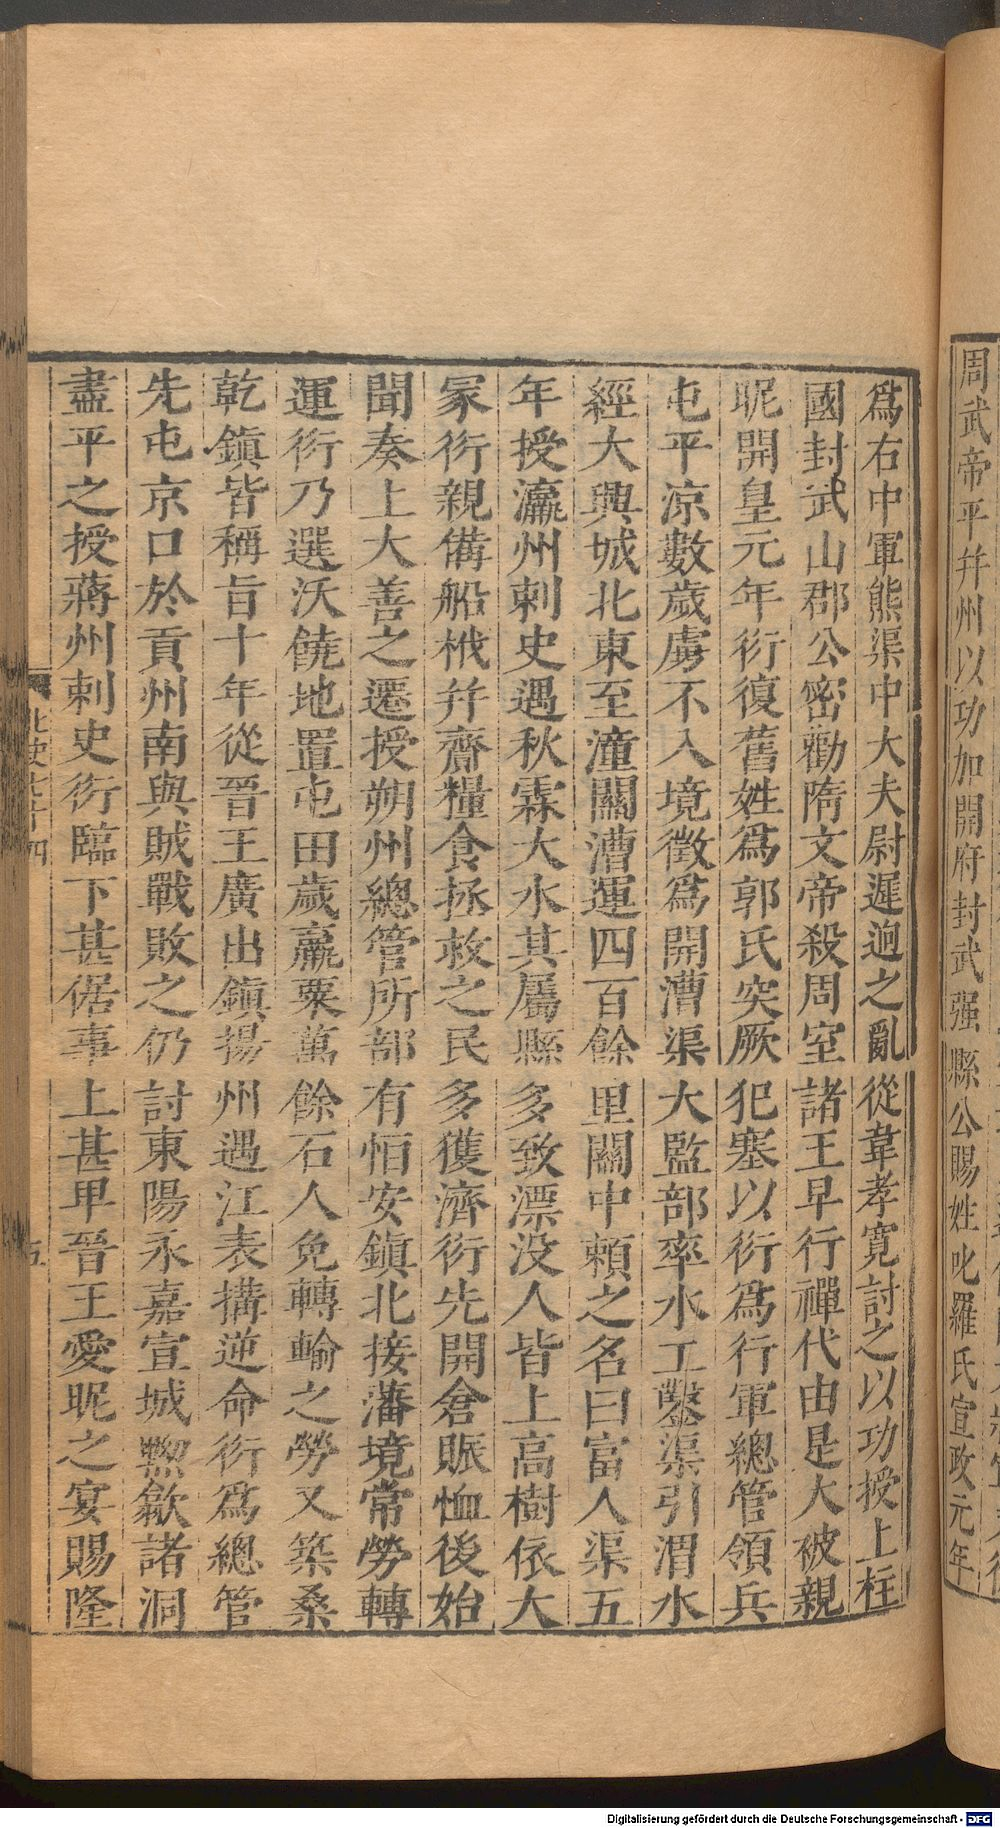 周武帝平幷州以功加開府封武强縣公賜姓叱羅氏宣政元年
爲右中軍熊渠中大夫尉遲逈之亂從韋孝寛討之以功授上柱
國封武山郡公密勸隋文帝殺周室諸王早行禪代由是大被親
昵開皇元年衍復舊姓爲郭氏突厥犯塞以衍爲行軍總管領兵
屯平涼數歲虜不入境徴爲開漕渠大監部率水工鑿渠引渭水
經大興城北東至潼關漕運四百餘里關中頼之名曰富人渠五
年授瀛州刺史遇秋霖大水其屬縣多致漂没人皆上高樹依大
冢衍親備船栰幷齎糧食拯救之民多獲濟衍先開倉賑恤後始
聞奏上大善之遷授朔州總管所部有恒安鎮北接蕃境常勞轉
運衍乃選沃饒地置屯田歲贏粟萬餘石人免轉輸之勞又築桑
乾鎮皆稱旨十年從晋王廣出鎮揚州遇江表搆逆命衍爲總管
先屯京口於貢州南與賊戰敗之仍討東陽永嘉宣城黟歙諸洞
盡平之授蔣州刺史衍臨下甚倨事上甚卑晉王愛昵之宴賜隆
北史七十四
五
Digitalisierung gefördert durch die Deutsche Forschungsgemeinschaft - DFG